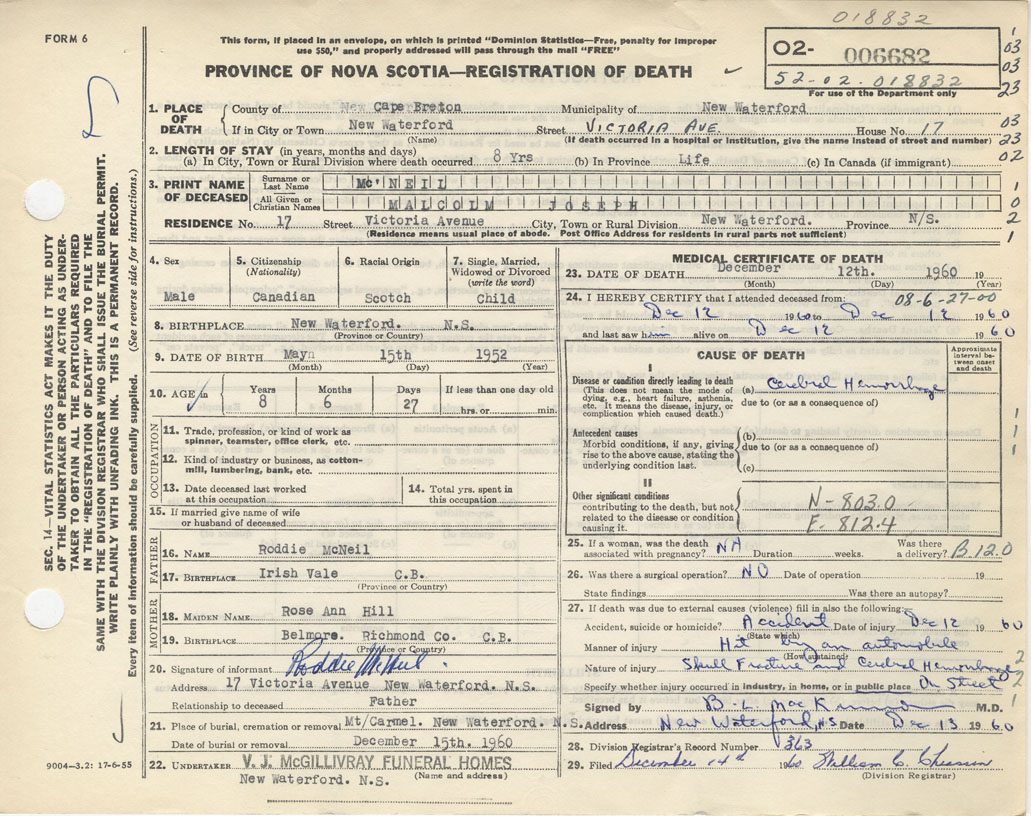 018832
FORM 6
This form, if placed in an envelope, on which is printed "Dominion Statistics—Free, penalty for improper
use $50," and properly addressed will pass through the mail "FREE"
PROVINCE OF NOVA SCOTIA—REGISTRATION OF DEATH
02- 006682
52-02.018832
For use of the Department only
1
03
03
23
03
23
02
1
0
2
1
SEC. 14—VITAL STATISTICS ACT MAKES IT THE DUTY
OF THE UNDERTAKER OR PERSON ACTING AS UNDER-
TAKER TO OBTAIN ALL THE PARTICULARS REQUIRED
IN THE "REGISTRATION OF DEATH" AND TO FILE THE
SAME WITH THE DIVISION REGISTRAR WHO SHALL ISSUE THE BURIAL PERMIT.
WRITE PLAINLY WITH UNFADING INK. THIS IS A PERMANENT RECORD.
Every item of information should be carefully supplied. (See reverse side for instructions.)
1. PLACE OF DEATH
County of New Cape Breton Municipality of New Waterford
If in City or Town New Waterford Street VICTORIA AVE. House No. 17
(Name) (If death occurred in a hospital or institution, give the name instead of street and number)
2. LENGTH OF STAY (in years, months and days)
(a) In City, Town or Rural Division where death occurred 8 Yrs (b) In Province Life (c) In Canada (if immigrant)
3. PRINT NAME OF DECEASED
Surname or Last Name Mc'NEIL
All Given or Christian Names MALCOLM JOSEPH
RESIDENCE No. 17 Street Victoria Avenue City, Town or Rural Division New Waterford. Province N/S.
(Residence means usual place of abode. Post Office Address for residents in rural parts not sufficient)
4. Sex
Male
5. Citizenship
(Nationality)
Canadian
6. Racial Origin
Scotch
7. Single, Married,
Widowed or Divorced
(write the word)
Child
8. BIRTHPLACE New Waterford. N.S.
(Province or Country)
9. DATE OF BIRTH Mayn 15th 1952
(Month) (Day) (Year)
10. AGE in
Years Months Days If less than one day old
8 6 27 hrs. or min.
OCCUPATION
11. Trade, profession, or kind of work as
spinner, teamster, office clerk, etc.
12. Kind of industry or business, as cotton-
mill, lumbering, bank, etc.
13. Date deceased last worked
at this occupation
14. Total yrs. spent in
this occupation
15. If married give name of wife
or husband of deceased
FATHER
16. NAME Roddie McNeil
17. BIRTHPLACE Irish Vale C.B.
(Province or Country)
MOTHER
18. MAIDEN NAME Rose Ann Hill
19. BIRTHPLACE Belmore. Richmond Co. C.B.
(Province or Country)
20. Signature of informant Roddie McNeil
Address 17 Victoria Avenue New Waterford. N.S.
Relationship to deceased Father
21. Place of burial, cremation or removal Mt/Carmel. New Waterford. N.S.
Date of burial or removal December 15th. 1960
22. UNDERTAKER V. J. McGILLIVRAY FUNERAL HOMES
New Waterford. N.S. (Name and address)
9004—3.2: 17-6-55
MEDICAL CERTIFICATE OF DEATH
23. DATE OF DEATH December 12th. 1960 19
(Month) (Day) (Year)
24. I HEREBY CERTIFY that I attended deceased from: 08-6-27-00
Dec 12 1960 to Dec 12 1960
and last saw him alive on Dec 12 1960
CAUSE OF DEATH
Approximate
interval be-
tween onset
and death
I
Disease or condition directly leading to death
(This does not mean the mode of
dying, e.g., heart failure, asthenia,
etc. It means the disease, injury, or
complication which caused death.)
(a) Cerebral Hemorrhage
due to (or as a consequence of)
Antecedent causes
Morbid conditions, if any, giving
rise to the above cause, stating the
underlying condition last.
(b)
due to (or as a consequence of)
(c)
II
Other significant conditions
contributing to the death, but not
related to the disease or condition
causing it.
N-803.0
E. 812.4
1
1
1
25. If a woman, was the death
associated with pregnancy? NA Duration weeks. Was there a delivery? B.12.0
26. Was there a surgical operation? NO Date of operation 19
State findings Was there an autopsy?
27. If death was due to external causes (violence) fill in also the following:
Accident, suicide or homicide? Accident Date of injury Dec 12 1960
(State which)
Manner of injury Hit by an automobile
(How sustained)
Nature of injury Skull Fracture and Cerebral Hemorrhage
Specify whether injury occurred in industry, in home, or in public place On Street
2
2
1
Signed by M.D.
Address New Waterford, N.S Date Dec 13 1960
28. Division Registrar's Record Number 363
29. Filed December 14th 1960 William C. Chiasson
(Division Registrar)